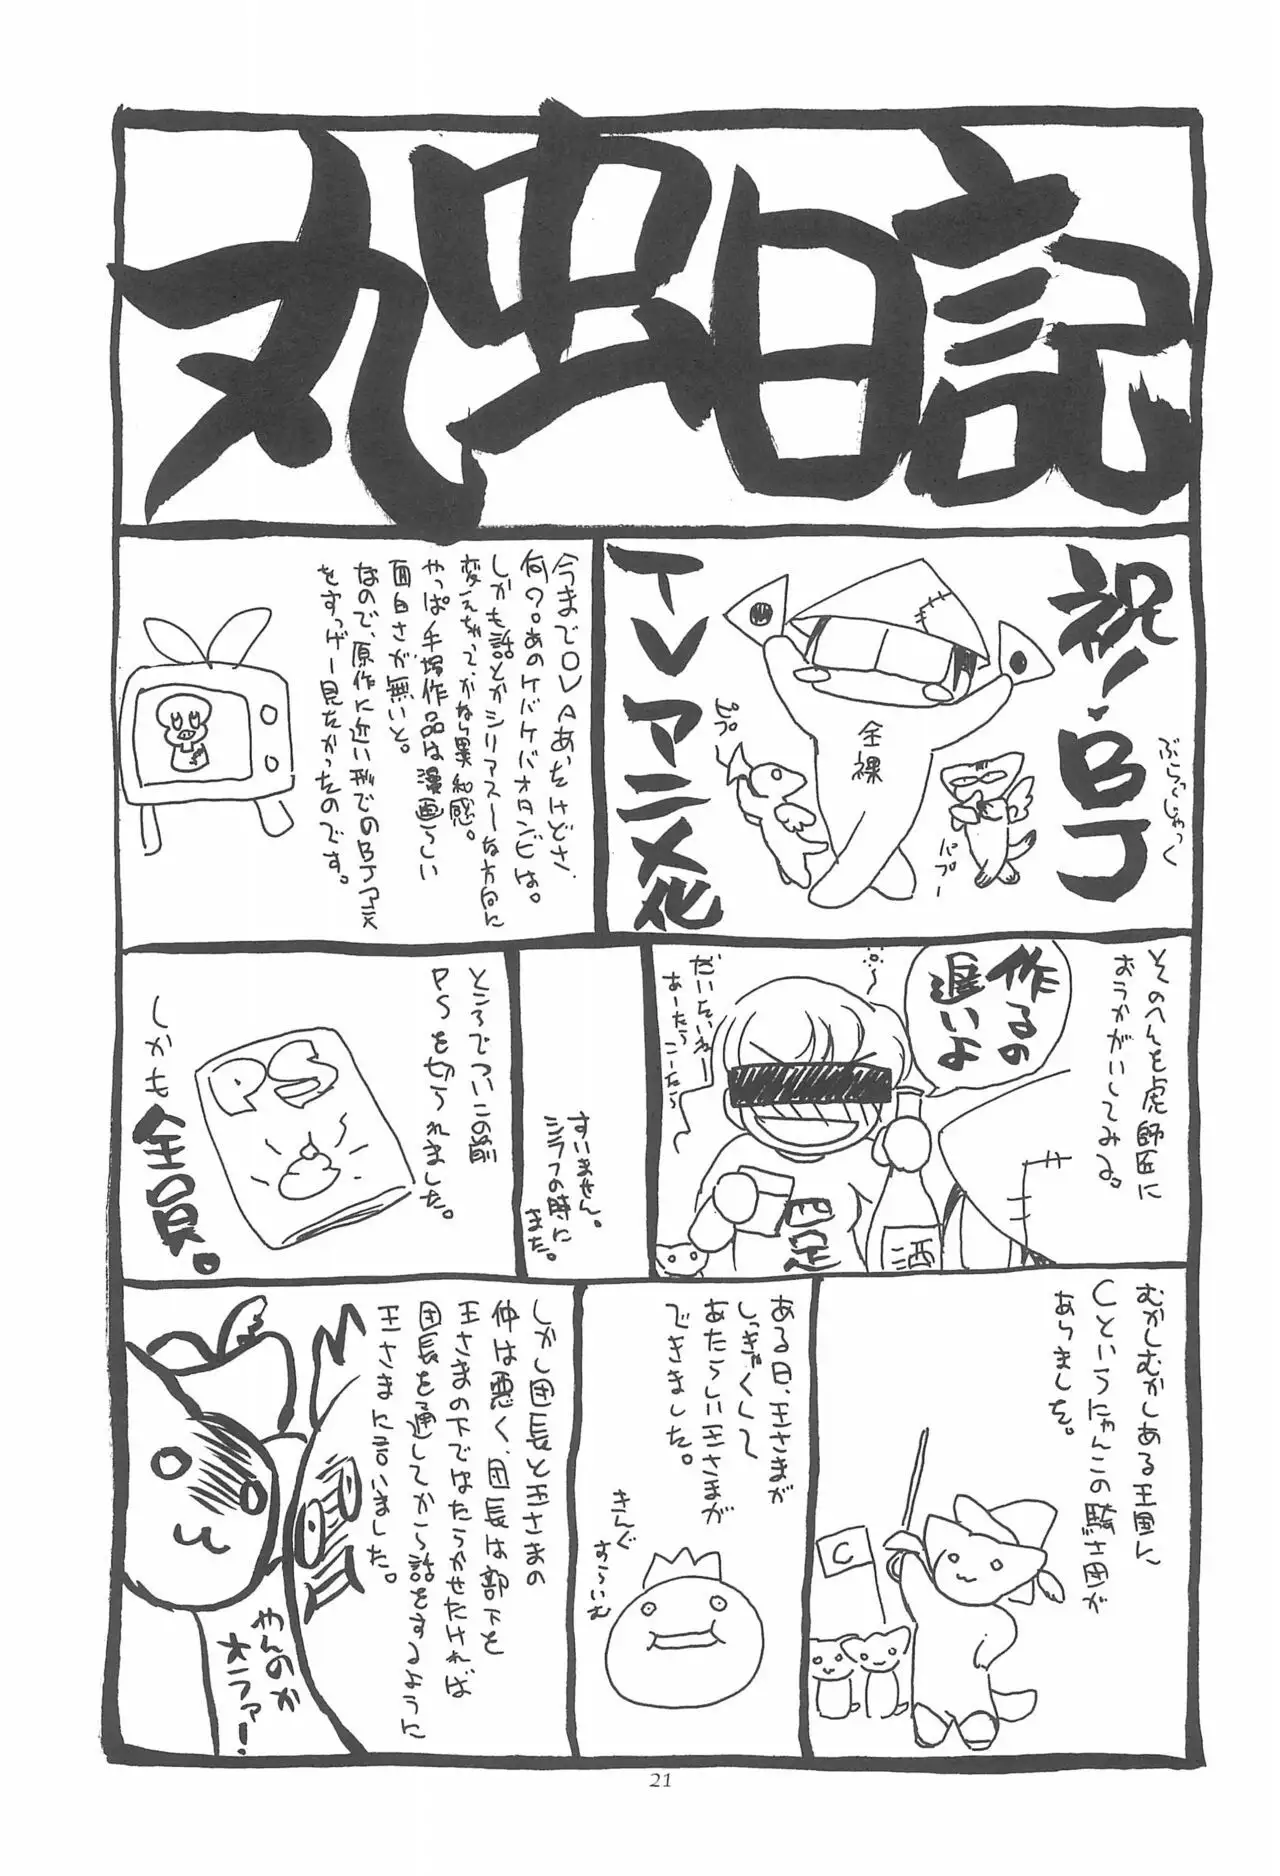 丸虫日記
祝!BJ
ぶらっくじゃっく
TVアニメ化
全裸
ピプー
パプー
今までOVAあったけどさ、
何?。あのケバケバオタンビは。
しかも話とかシリアスーな方向に
変えちゃってかなり異和感。
やっぱ手塚作品は漫画らしい
面白さが無いと。
なので、原作に近い形でのBJアニメ
をすっげー見たかったのです。
そのへんを虎師匠に
おうかがいしてみる。
作るの
遅いよ
だいたいねー
あーたらこーたら
酒
すいません。
シラフの時に
また。
ところでついこの前
PSを切られました。
PS
しかも
全員。
むかしむかしある王国に
Cというにゃんこの騎士団が
ありました。
C
ある日、王さまが
しっきゃくして
あたらしい王さまが
できました。
きんぐ
すらいむ
しかし団長と王さまの
仲は悪く、団長は部下を
王さまの下ではたらかせたければ
団長を通してから話をするように
王さまに言いました。
やんのか
オラァー!
21